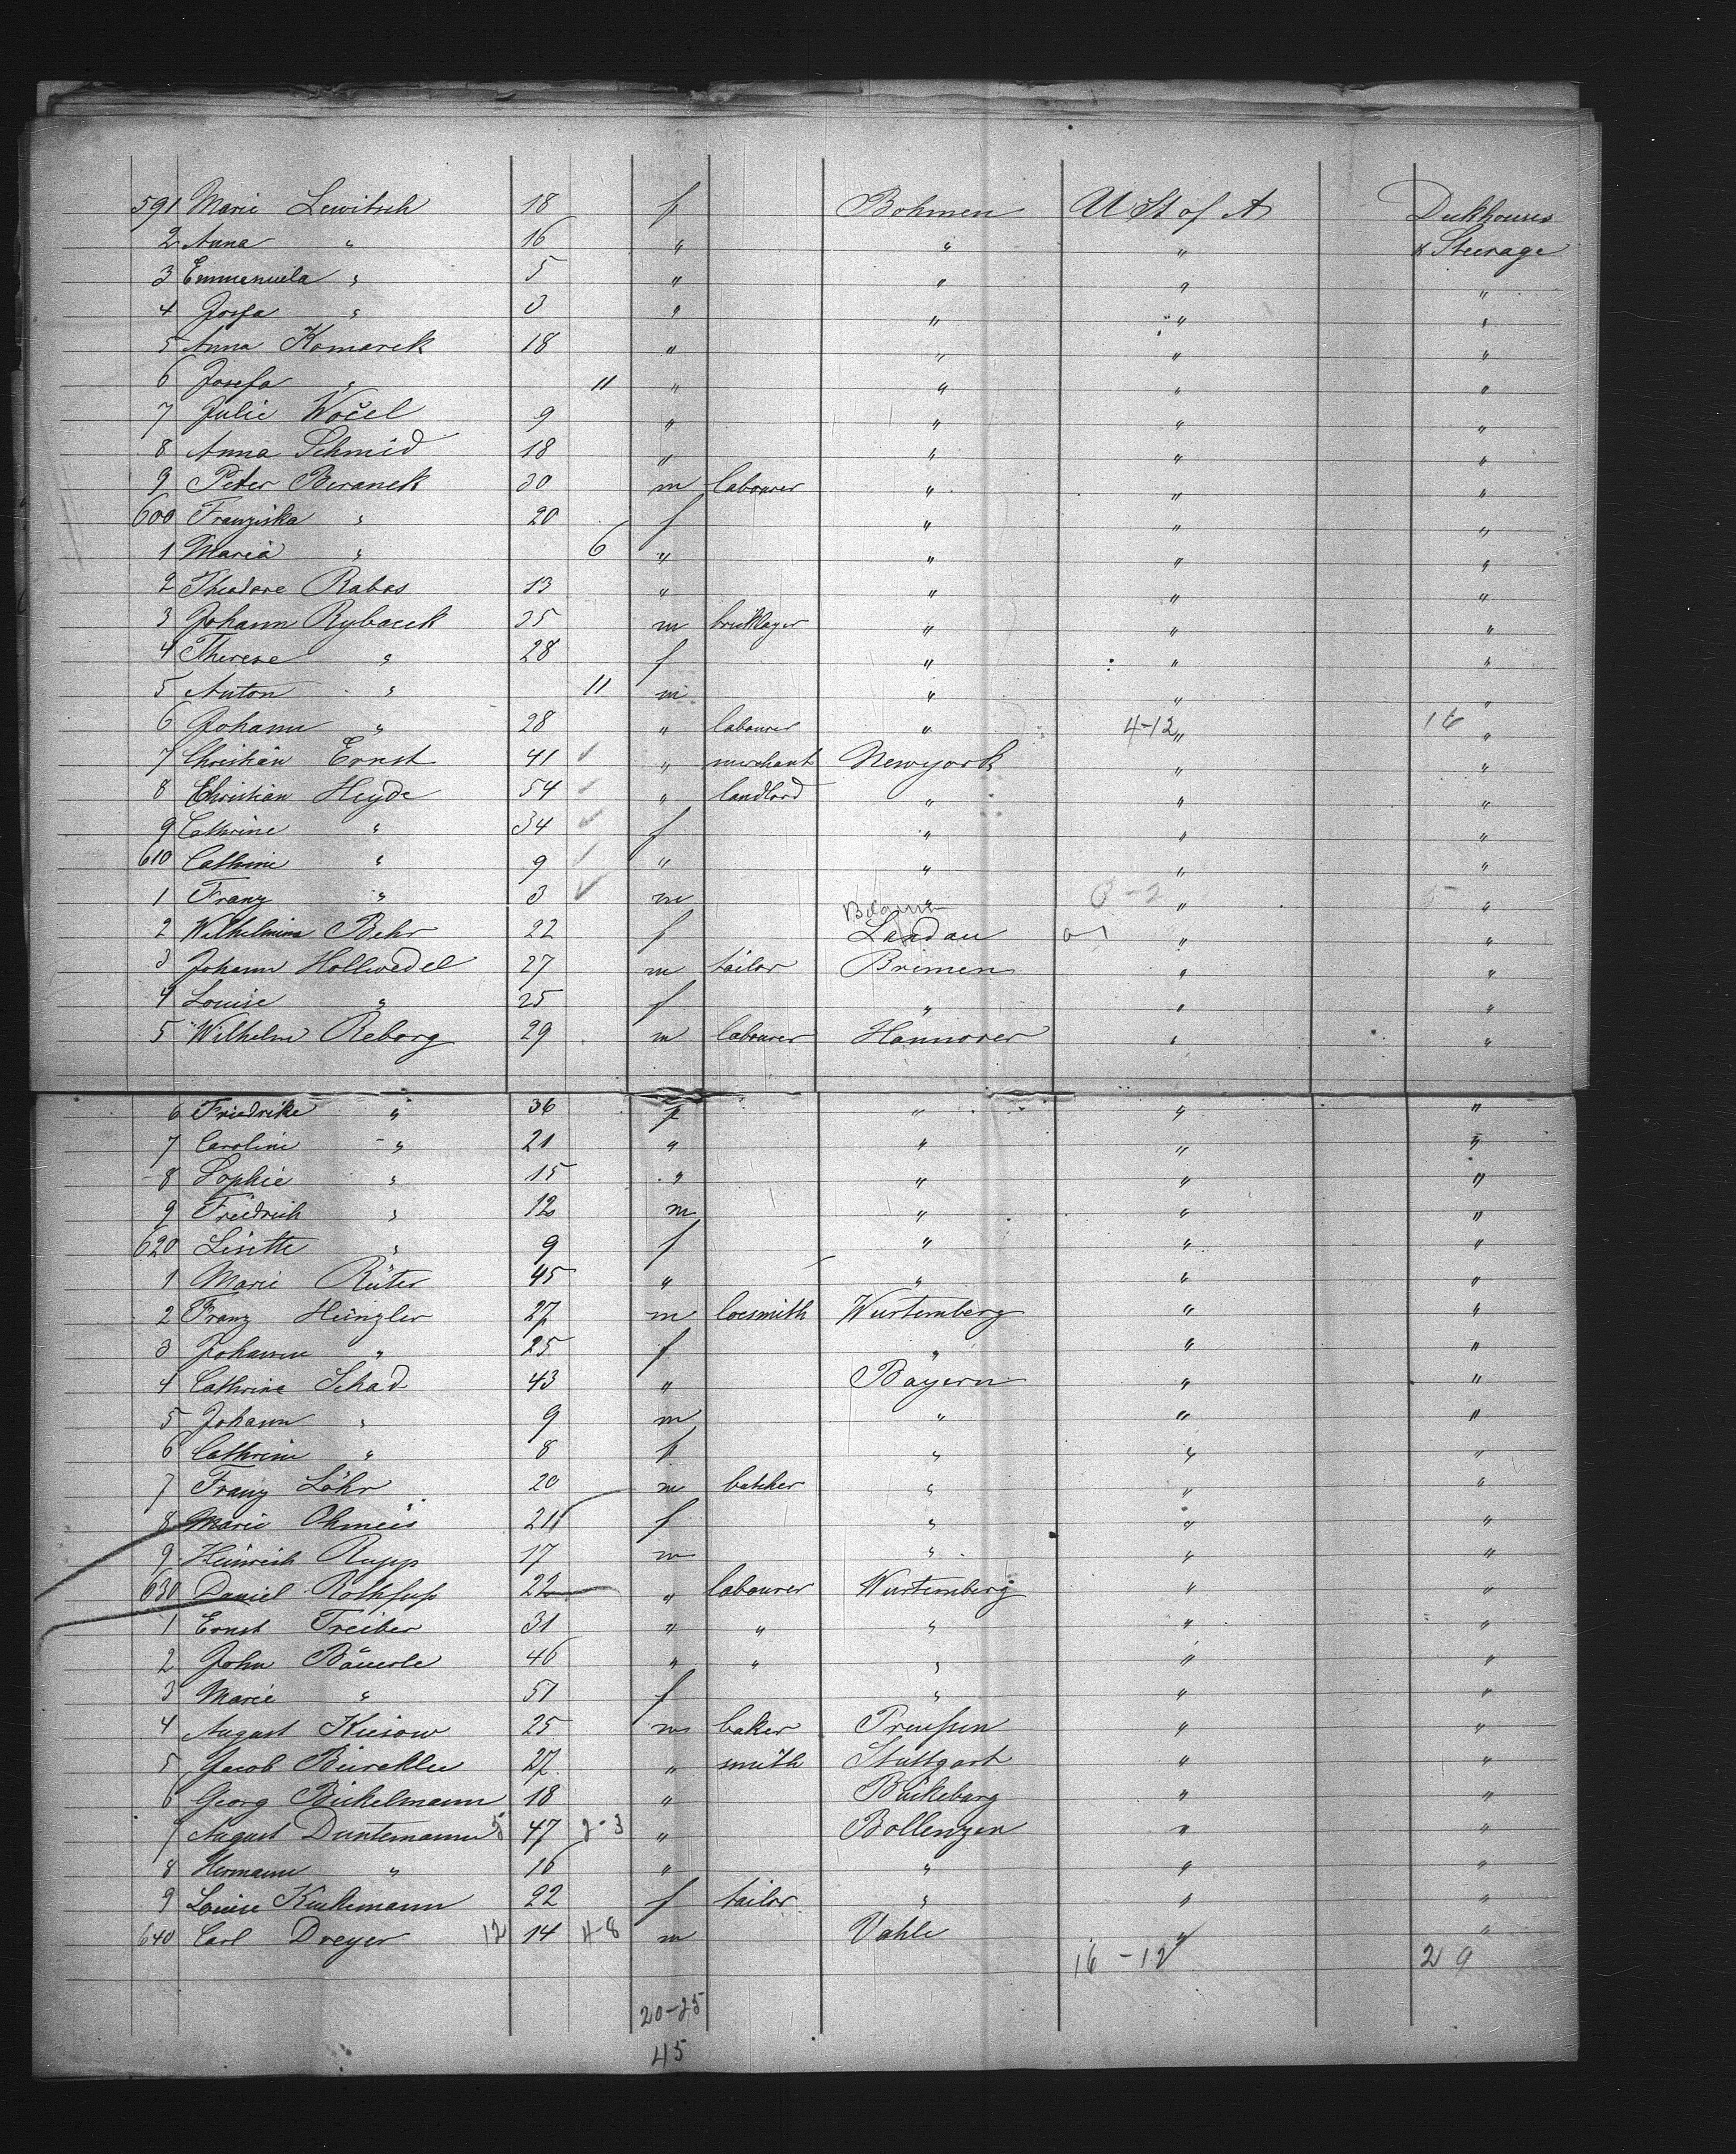 591 Marie Lewitsch 18 f Bohmen U St of A Deckhouses
2 Anna " 16 " " " & Steerage
3 Emmanuela " 5 " " " "
4 Josefa " 3 " " " "
5 Anna Komarek 18 " " " "
6 Josefa " 11 " " " "
7 Julie Wočel 9 " " " "
8 Anna Schmid 18 " " " "
9 Peter Beranek 30 m labourer " " "
600 Franziska " 20 f " " "
1 Maria " 6 " " " "
2 Theodore Rabas 13 " " " "
3 Johann Rybacek 35 m bricklayer " " "
4 Therese " 28 f " " "
5 Anton " 11 m " " "
6 Johann " 28 " labourer " 4-12 " 16 "
7 Christian Ernst 41 ✓ " merchant Newyork " "
8 Christian Heyde 54 ✓ " landlord " " "
9 Cathrine " 34 ✓ f " " "
610 Cathrine " 9 ✓ " " " "
1 Franz " 3 ✓ m " 3-2 " 5 "
2 Wilhelmine Behr 22 f Landau 0-1 " "
3 Johann Hollwedel 27 m tailor Bremen " "
4 Louise " 25 f " " "
5 Wilhelm Reborg 29 m labourer Hannover " "
6 Friedrike " 36 f " " "
7 Caroline " 21 " " " "
8 Sophie " 15 " " " "
9 Friedrich " 12 m " " "
620 Lisette " 9 f " " "
1 Marie Rüter 45 " " " "
2 Franz Hünzler 27 m locsmith Wurtemberg " "
3 Johanne " 25 f " " "
4 Cathrine Schad 43 " Bayern " "
5 Johann " 9 m " " "
6 Cathrine " 8 f " " "
7 Franz Löhr 20 m butcher " " "
8 Marie Ohmeis 21 f " " "
9 Heinrich Rupp 17 m " " "
630 Daniel Rothfuß 22 " labourer Wurtemberg " "
1 Ernst Treiber 31 " " " " "
2 John Bäuerle 46 " " " " "
3 Marie " 51 f " " "
4 August Kiesow 25 m baker Preußen " "
5 Jacob Bürckle 27 " smith Stuttgart " "
6 Georg Bickelmann 18 " Bückeburg " "
7 August Duntemann 5 47 2-3 " Bollenzen " "
8 Hermann " 16 " " " "
9 Louise Kuckemann 22 f tailor " " "
640 Carl Dreyer 12 14 4-8 m Vahle " "
16-12 29
20-25
45